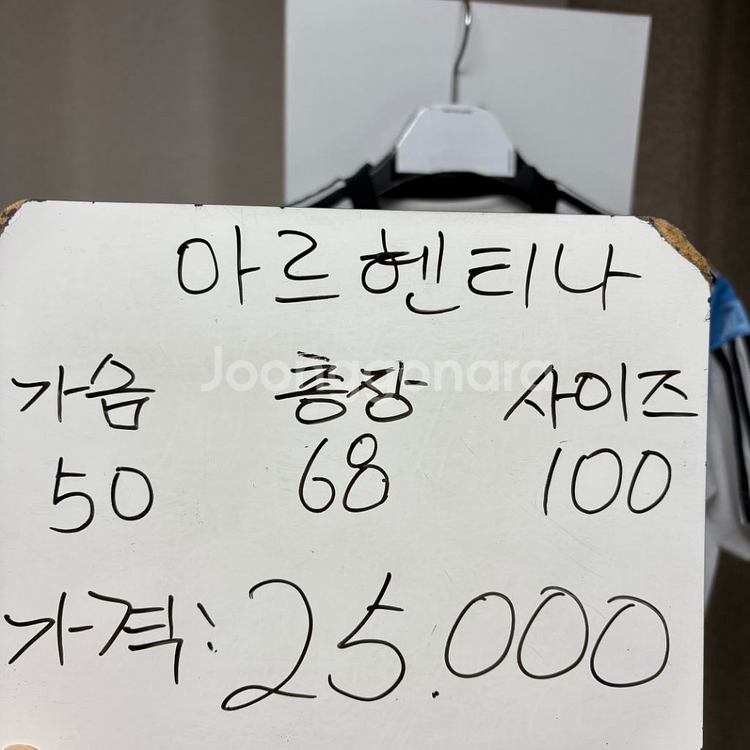 아르헨티나
Joonggonara
가슴 총장 사이즈
50 68 100
가격: 25.000